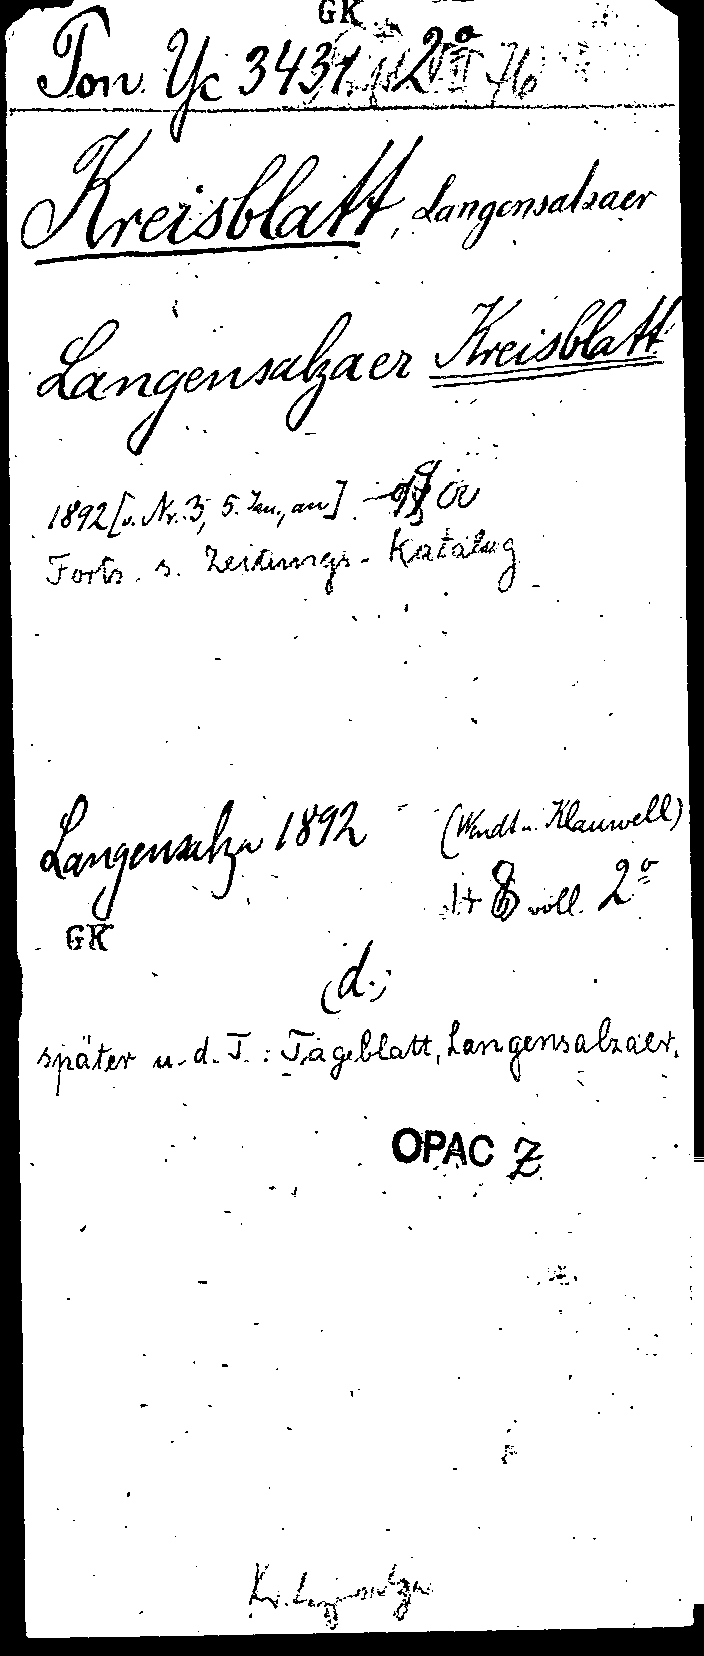 GK
Ton Yc 3431 2º
Kreisblatt, Langensalzaer
Langensalzaer Kreisblatt
1892 [v. Nr. 3, 5. Jan., an] –
Forts. s. Zeitungs-Katalog
Langensalza 1892 (Wendt u. Klauwell)
8 voll. 2º
GK
(d.)
später u. d. T.: Tageblatt, Langensalzaer.
OPAC Z
Kr. Langensalza